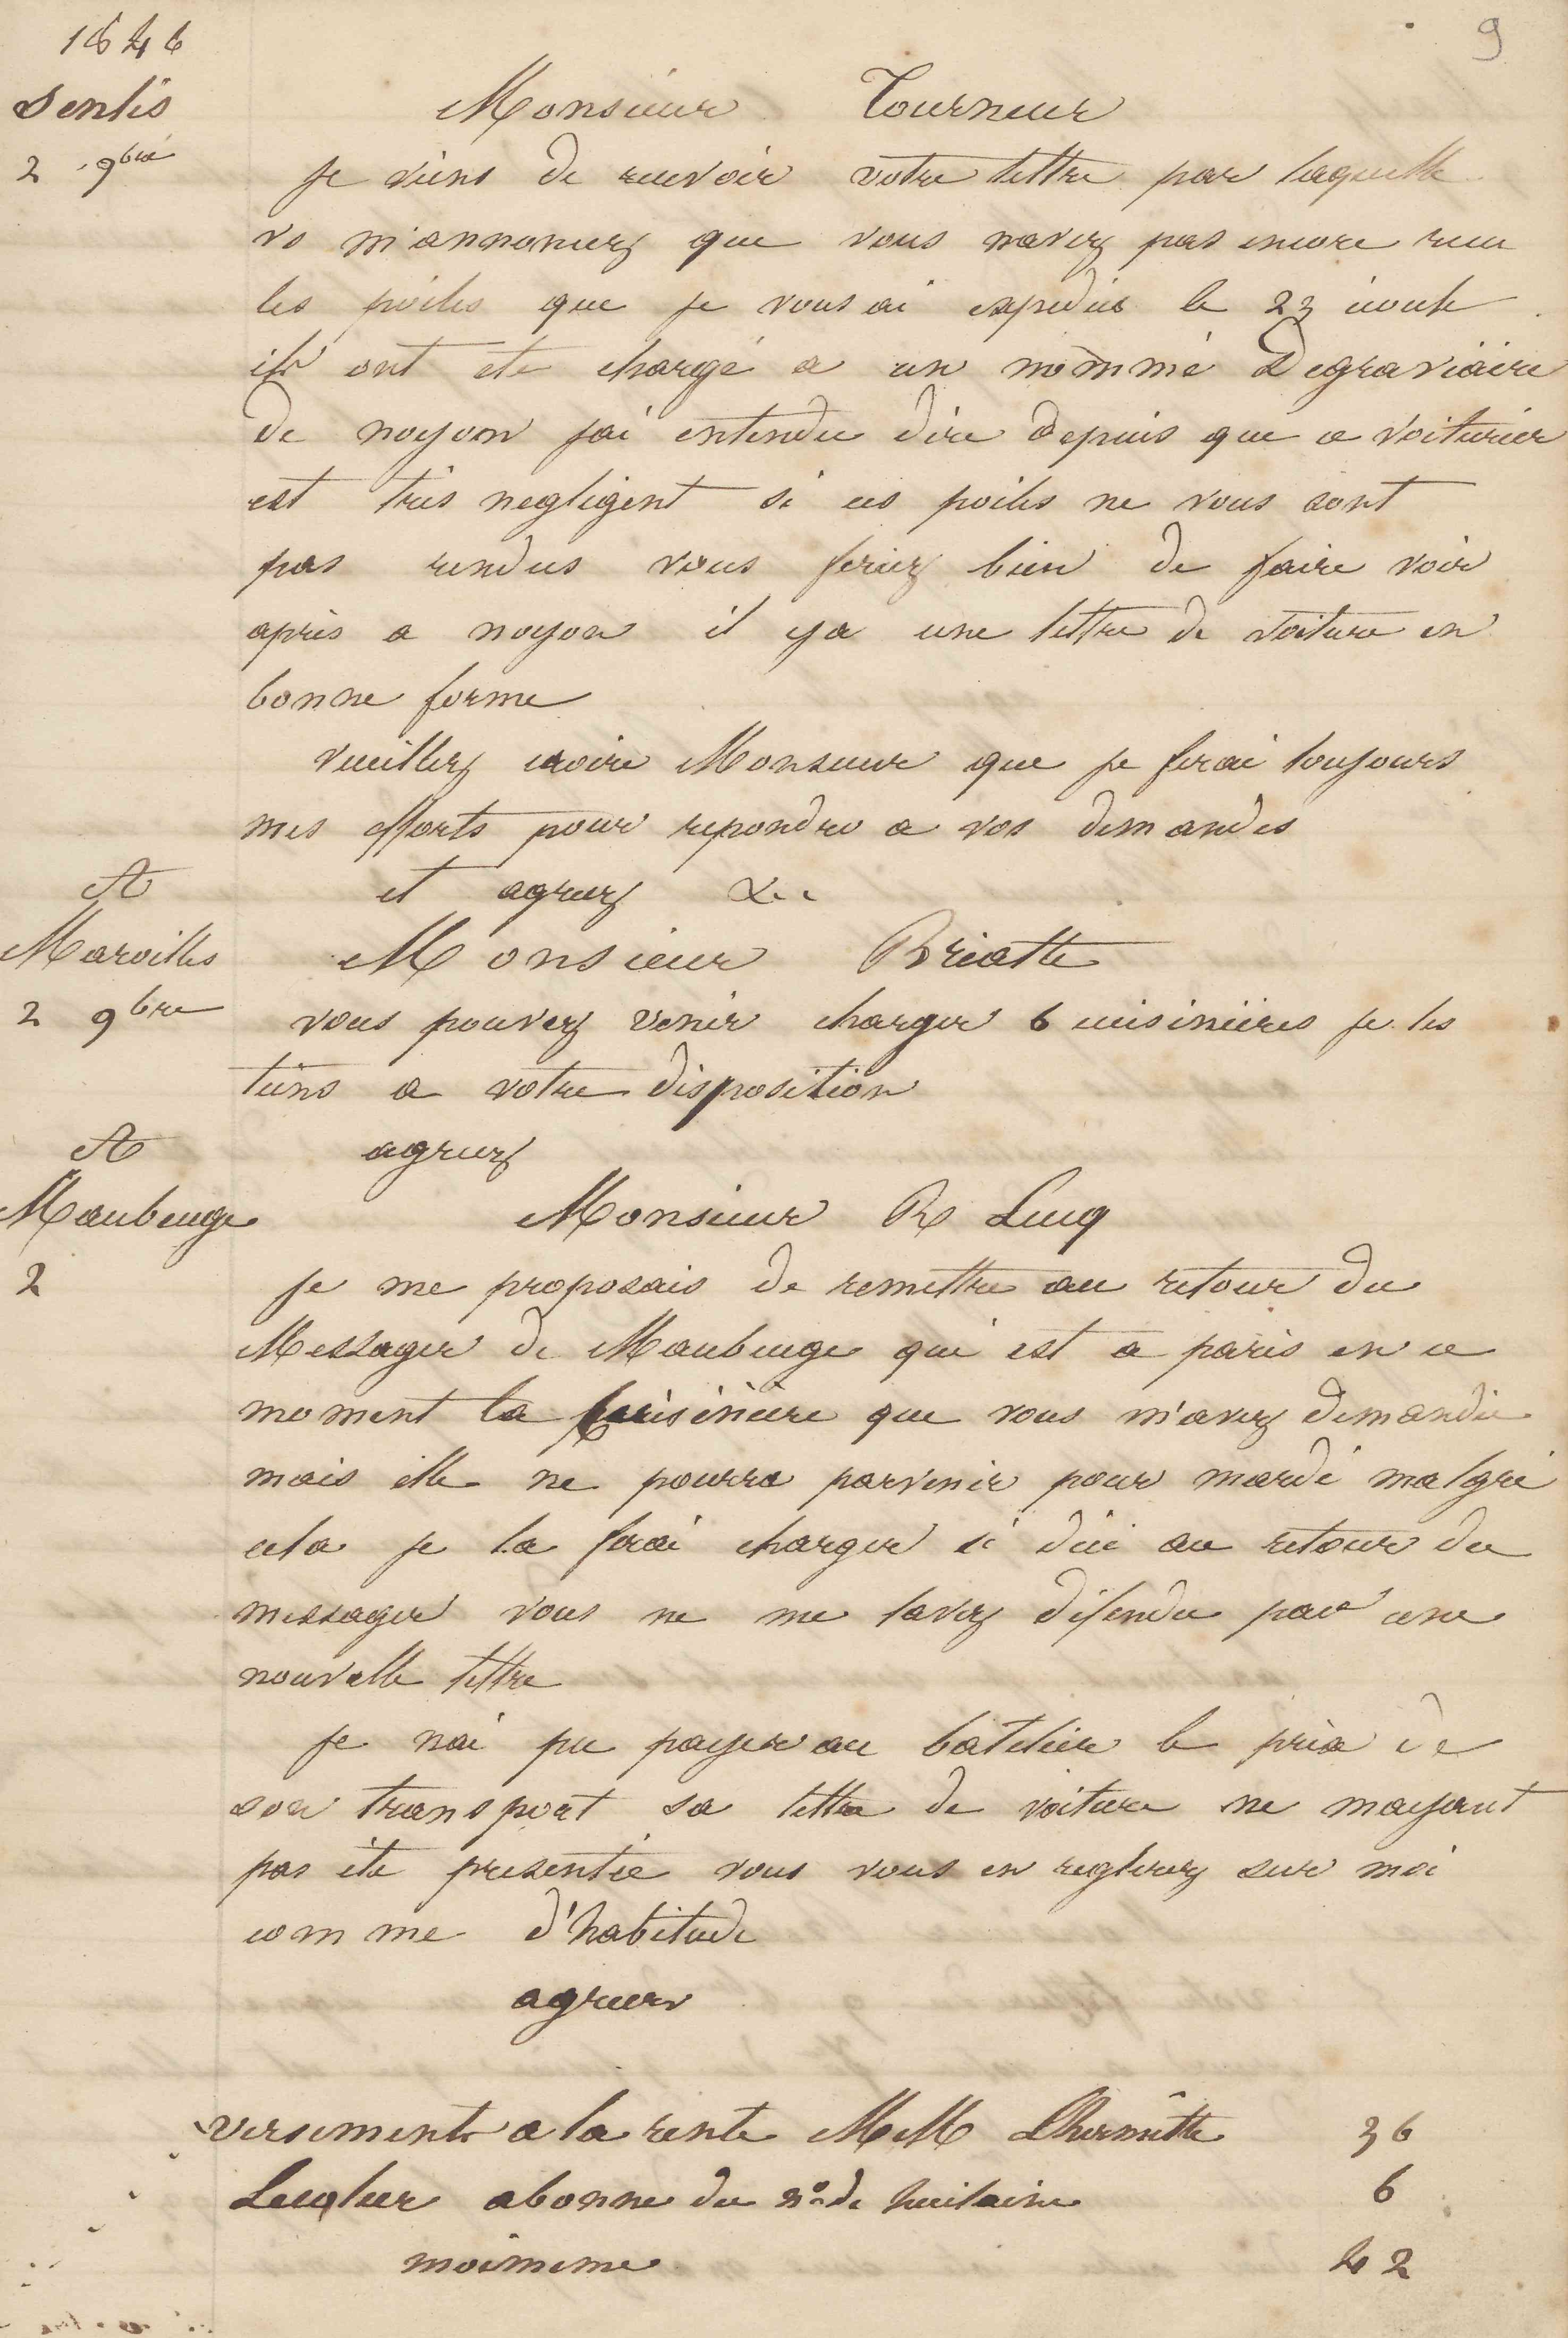 9
1846
Senlis
2 9bre
Monsieur Tourneur
je viens de recevoir votre lettre par laquelle
vs m'annoncez que vous navez pas encore recu
les poiles que je vous ai expediés le 23 aoute
ils ont ete chargé a un nommé Degraviäire
de noyon jai entendu dire depuis que ce voiturier
est très negligent si ces poiles ne vous sont
pas rendus vous feriez bien de faire voir
après a noyon il ya une lettre de voiture en
bonne forme
veuillez croire Monsieur que je ferai toujours
mes efforts pour repondre a vos demandes
et agreez &c
A
Maroilles
2 9bre
Monsieur Briatte
vous pouvez venir charger 6 cuisinières je les
tiens a votre disposition
agreez
A
Maubeuge
2
Monsieur R Lucq
je me proposais de remettre au retour du
Messager de Maubeuge qui est a paris en ce
moment la cuisinière que vous m'avez demandée
mais elle ne pourra parvenir pour mardi malgré
cela je la ferai charger si dici au retour du
messager vous ne me lavez défendu par une
nouvelle lettre
je nai pu payer au batelier le prix de
son transport sa lettre de voiture ne mayant
pas été presentée vous vous en reglerez sur moi
comme d'habitude
agreez
versements a la rente MM Lhermitte 36
abonne du no de huitaine 6
moimeme 42